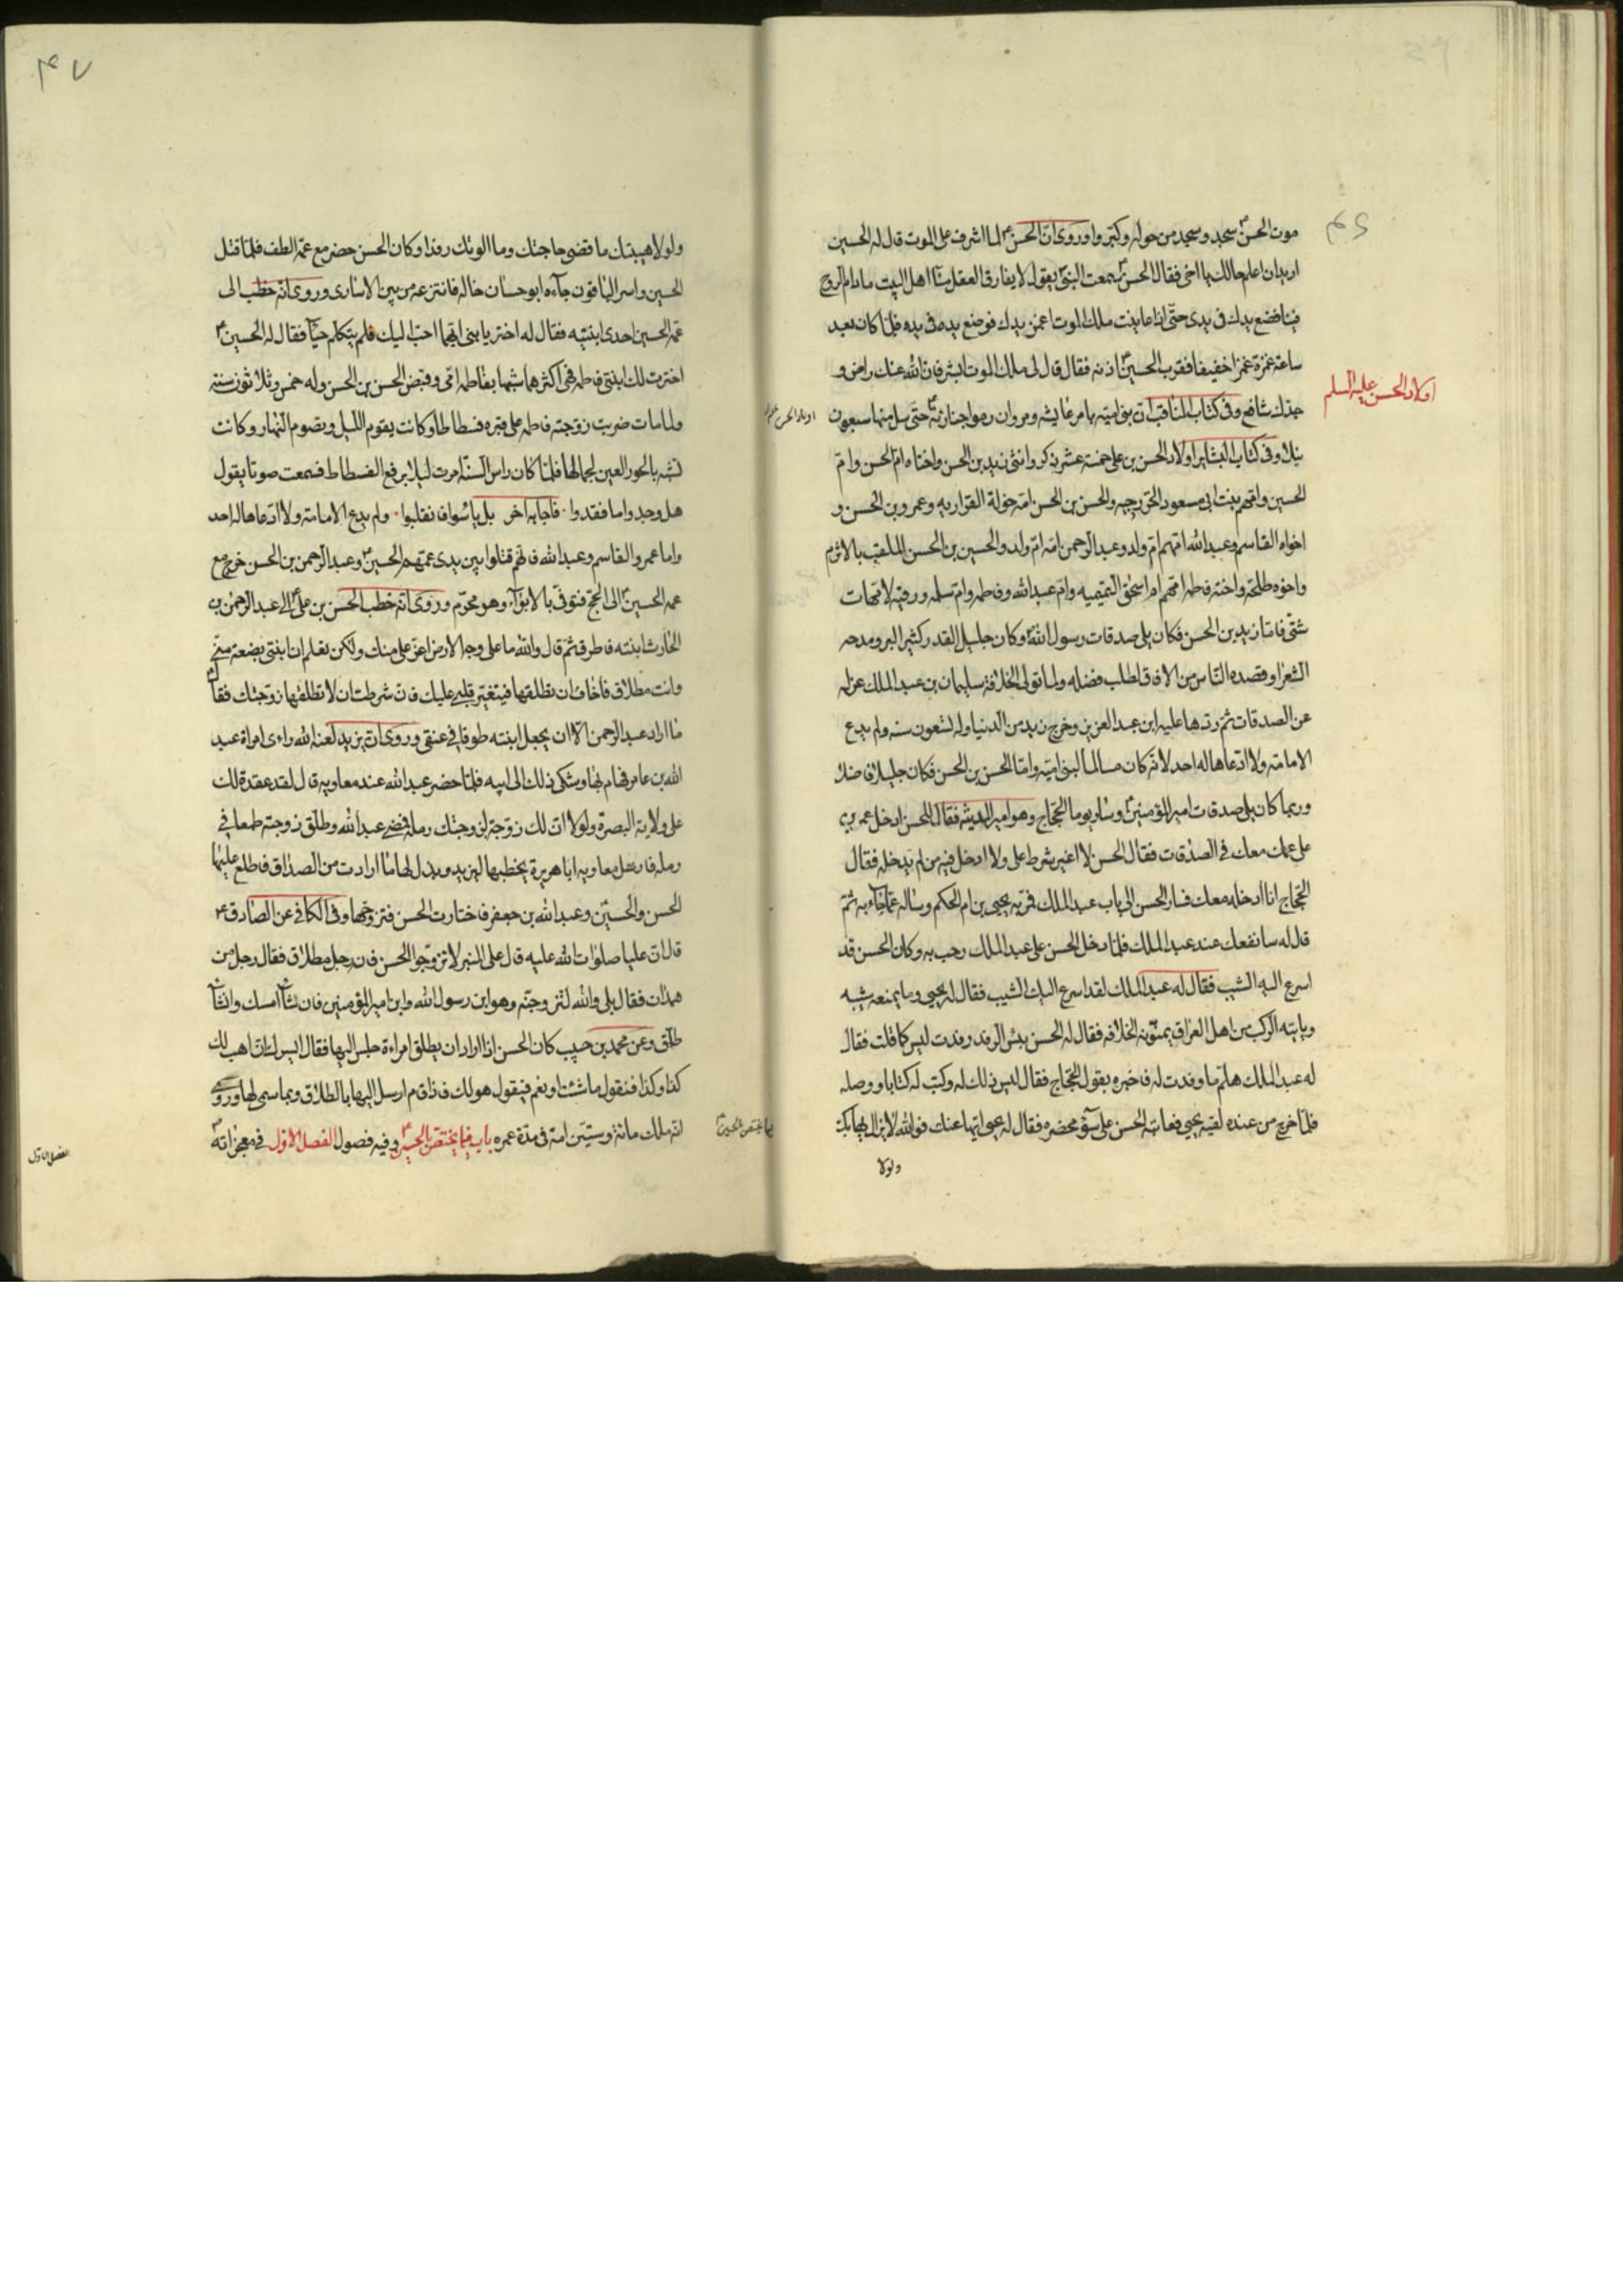 ٤٦
موت الحسن ع سجد وسجد من حوله وكبر وا وروى ان الحسن ع لما اشرف على الموت قال له الحسين
اريد ان اعلم حالك يا اخى فقال الحسن ع سمعت النبى يقول لا يفارق العقل منا اهل البيت ما دام الروح
فينا فضع يدك فى يدى حتى اذا عاينت ملك الموت اغمز يدك فوضع يده فى يده فلما كان بعد
ساعة غمزه غمزا خفيفا فقرب الحسين ع اذنه فقال قال لى ملك الموت ابشر فان الله عنك راض و
جدك شافع وفى كتاب المناقب ان بنى اميه بامر عايشه ومروان رموا جنازته حتى سل منها سبعون
اولاد الحسن عليه السلم
نبلا وفى كتاب البشاير اولاد الحسن بن على خمسة عشر ذكر وانثى زيد بن الحسن واختاه ام الحسن وام
الحسين وامهم بنت ابى مسعود الخزرجيه والحسن بن الحسن امه خولة الفزاريه وعمرو بن الحسن و
اخواه القاسم وعبد الله امهم ام ولد وعبد الرحمن امه ام ولد والحسين بن الحسن الملقب بالاثرم
واخوه طلحة واخته فاطمه امهم ام اسحق التيميه وام عبد الله وفاطمه وام سلمه ورقيه لامهات
شتى فاما زيد بن الحسن فكان يلى صدقات رسول الله وكان جليل القدر كثير البر ومدحه
الشعرا وقصده الناس من الافاق لطلب فضله ولما تولى الخلافة سليمان بن عبد الملك عزله
عن الصدقات ثم ردها عليه ابن عبد العزيز وخرج زيد من الدنيا وله تسعون سنه ولم يدع
الامامة ولا ادعاها له احد لانه كان مسالما لبنى اميه واما الحسن بن الحسن فكان جليلا فاضلا
وربما كان يلى صدقات امير المؤمنين ع وساير يوما الحجاج وهو امير المدينة فقال للحسن ادخل عمر بن
على عمك معك فى الصدقات فقال الحسن لا اغير شرط على ولا ادخل فيه من لم يدخله فقال
الحجاج انا ادخله معك فسار الحسن الى باب عبد الملك فمر به يحيى بن ام الحكم وساله عما جاء به ثم
قال له سانفعك عند عبد الملك فلما دخل الحسن على عبد الملك رحب به وكان الحسن قد
اسرع اليه الشيب فقال له عبد الملك لقد اسرع اليك الشيب فقال له يحيى وما يمنعه شيبه
ويابته الركب من اهل العراق يمنونه الخلافه فقال له الحسن بئس الرفد رفدت ليس كما قلت فقال
له عبد الملك هلم ما وفدت له فاخبره بقول الحجاج فقال ليس ذلك له وكتب له كتابا ووصله
فلما خرج من عنده لقيه يحيى فعاتبه الحسن على سؤ محضره فقال له يحيى ايها عنك فوالله لا يزال يهابك
ولولا
٤٧
ولولا هيبتك ما قضى حاجتك وما الوتك رفدا وكان الحسن حضر مع عمه الطف فلما قتل
الحسين واسر الباقون جآءه ابو حسان خاله فانتزعه من بين الاسارى وروى انه خطب الى
عمه الحسين احدى ابنتيه فقال له اختر يا بنى ايهما احب اليك فلم يتكلم حيآ فقال له الحسين ع
اخترت لك ابنتى فاطمه فهى اكثرهما شبها بفاطمه امى وقبض الحسن بن الحسن وله خمس وثلاثون سنة
ولما مات ضربت زوجته فاطمه على قبره فسطاطا وكانت يقوم الليل ويصوم النهار وكانت
تشبه بالحور العين لجمالها فلما كان راس السنة امرت ليلا برفع الفسطاط فسمعت صوتا يقول
هل وجدوا ما فقدوا فاجابه اخر بل يئسوا فانقلبوا ولم يدع الامامة ولا ادعاها له احد
واما عمرو والقاسم وعبد الله فانهم قتلوا بين يدى عمهم الحسين ع وعبد الرحمن بن الحسن خرج مع
عمه الحسين ع الى الحج فتوفى بالابوآء وهو محرم وروى انه خطب الحسن بن على ع الى عبد الرحمن بن
الحارث ابنته فاطرق ثم قال والله ما على وجه الارض اعز على منك ولكن تعلم ان ابنتى بضعة منى
وانت مطلاق فاخاف ان تطلقها فيتغير قلبى عليك فان شرطت ان لا تطلقها زوجتك فقال
ما اراد عبد الرحمن الا ان يجعل ابنته طوقا فى عنقى وروى ان يزيد لعنه الله راءى امراة عبد
الله بن عامر فهام بها وشكى ذلك الى ابيه فلما حضر عبد الله عند معاويه قال لقد عقدت لك
على ولاية البصرة ولولا ان لك زوجة لزوجتك رملة فمضى عبد الله وطلق زوجته طمعا فى
رملة فارسل معاويه ابا هريرة يخطبها ليزيد وبذل لها ما ارادت من الصداق فاطلع عليها
الحسن والحسين وعبد الله بن جعفر فاختارت الحسن فتزوجها وفى الكافى عن الصادق ع
قال ان عليا صلوات الله عليه قال على المنبر لا تزوجوا الحسن فانه رجل مطلاق فقال رجل من
همدان فقال بلى والله لنزوجنه وهو ابن رسول الله وابن امير المؤمنين فان شآء امسك وان شآء
طلق وعن محمد بن حبيب كان الحسن اذا اراد ان يطلق امراءة جلس اليها فقال ايسرك ان اهب لك
كذا وكذا فتقول ما شئت او نعم فيقول هو لك فاذا قام ارسل اليها بالطلاق وبما سمى لها وروى
انه ملك مائة وستين امة فى مدة عمره باب فيما يختص بالحسين ع وفيه فصول الفصل الاول فى معجزاته ع
الفصل الاول